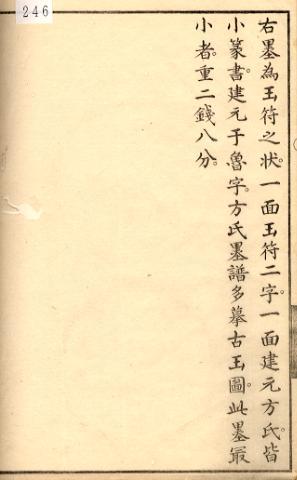 246
右墨為玉符之狀。一面玉符二字。一面建元方氏。皆
小篆書。建元于魯字。方氏墨譜多摹古玉圖。此墨冣
小者。重二錢八分。